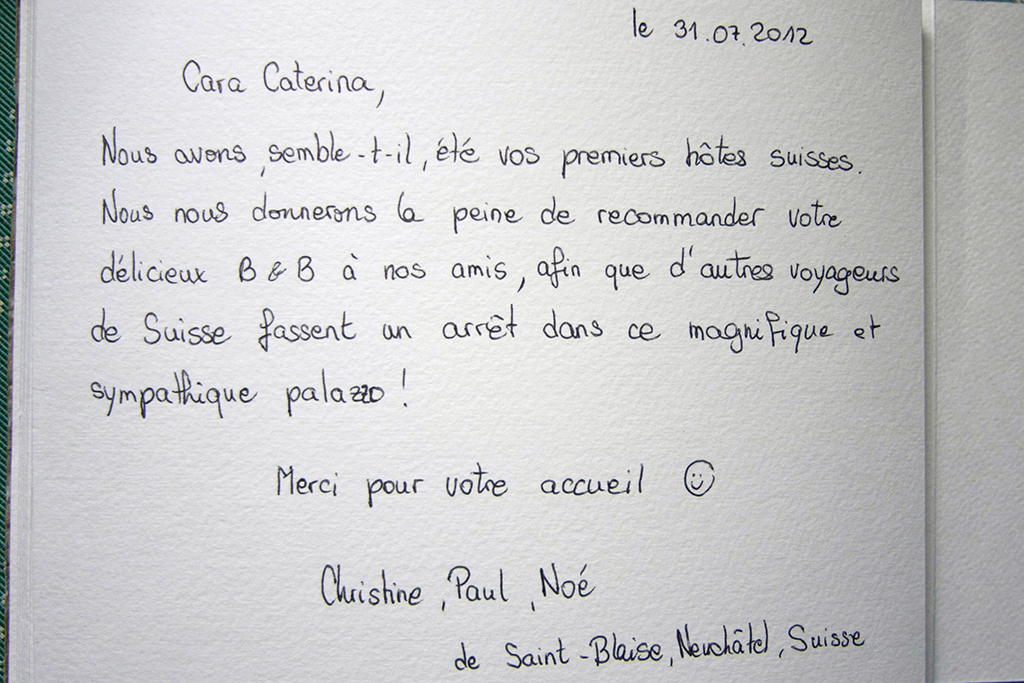 le 31.07.2012
Cara Caterina,
Nous avons, semble-t-il, été vos premiers hôtes suisses.
Nous nous donnerons la peine de recommander votre
délicieux B & B à nos amis, afin que d'autres voyageurs
de Suisse fassent un arrêt dans ce magnifique et
sympathique palazzo !
Merci pour votre accueil ☺
Christine, Paul, Noé
de Saint-Blaise, Neuchâtel, Suisse